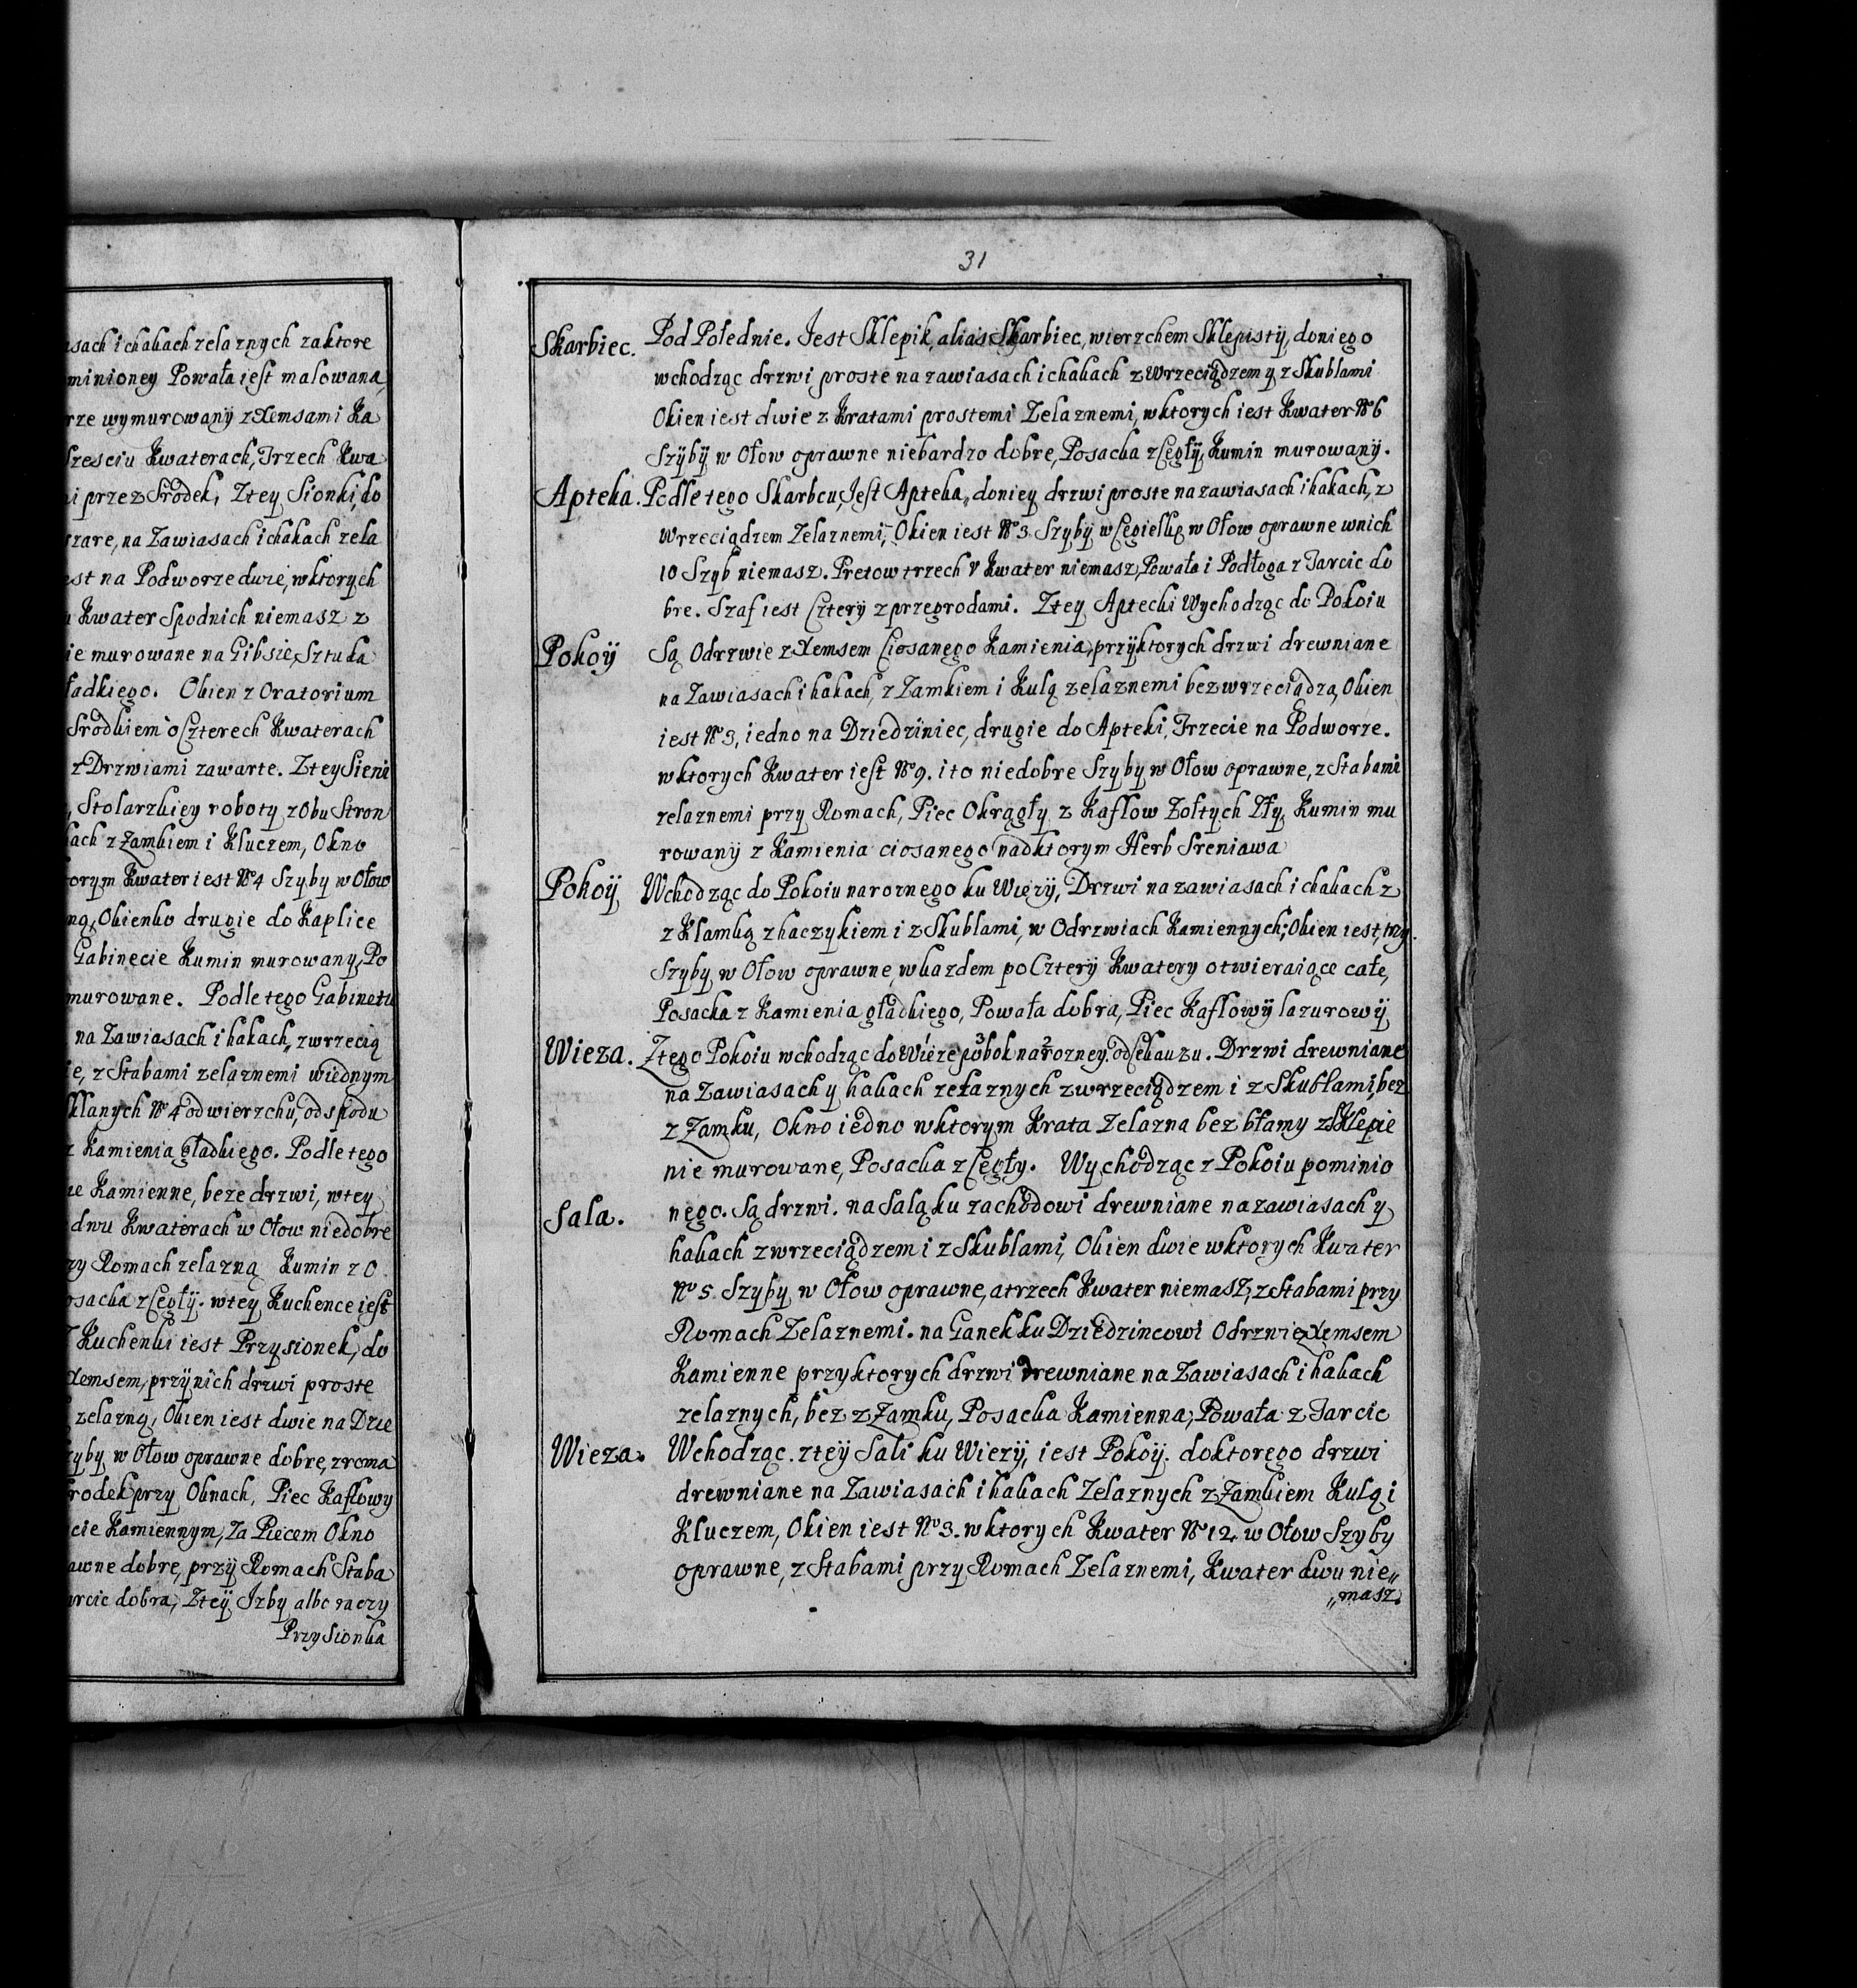 asach i chakach zelaznych zaktore
minioney Powała iest malowana,
rze wymurowany z Xemsami Ka
Szesciu Kwaterach, Trzech Kwa
ni przez Srodek, Ztey Sionki, do
szare, na Zawiasach i chakach zela
est na Podworze dwie, wktorych
u Kwater Spodnich niemasz z
ie murowane na Gibsie, Sztuka
ładkiego. Okien z Oratorium
Srodkiem o Czterech Kwaterach
z Drzwiami zawarte. Ztey Sieni
, Stolarzkiey roboty z Obu Stron
kach z Zamkiem i Kluczem, Okno
torym Kwater iest Nº 4 Szyby w Ołow
ną, Okienko drugie do Kaplice
Gabinecie Kumin murowany, Po
murowane. Podle tego Gabinetu
na Zawiasach i hakach, zwrzecią
ie, z Stabami zelaznemi wiednym
Sklanych Nº 4 od wierzchu, od spodu
z Kamienia gładkiego. Podle tego
ne Kamienne, beze drzwi, wtey
dwu Kwaterach w Ołow niedobre
zy Romach zelazną Kumin z O
osacka z Cegły. wtey Kuchence iest
Z Kuchenki iest Przysionek, do
Xemsem, przy nich drzwi proste
zelazną, Okien iest dwie na Dzie
zyby w Ołow oprawne dobre, z roma
Srodek przy Oknach, Piec Kaflowy
cie Kamiennym, Za Piecem Okno
awne dobre, przy Romach Staba
arcic dobra, Ztey Izby albo raczy
Przysionka
31
Skarbiec. Pod Połednie. Jest Sklepik, alias Skarbiec, wierzchem Sklepisty, doniego
wchodząc drzwi proste na zawiasach i chakach z Wrzeciądzem y z Skublami
Okien iest dwie z Kratami prostemi Zelaznemi, wktorych iest Kwater Nº 6
Szyby w Ołow oprawne niebardzo dobre, Posacka z Cegły, Kumin murowany.
Apteka. Podle tego Skarbcu, Jest Apteka, doniey drzwi proste na zawiasach i hakach, z
Wrzeciądzem Zelaznemi, Okien iest Nº 3 Szyby w Cegiełkę w Ołow oprawne wnich
10 Szyb niemasz. Prętow trzech v Kwater niemasz, Powała i Podłoga z Tarcic do
bre. Szaf iest Cztery z przegrodami. Ztey Aptecki Wychodząc do Pokoiu
Pokoy Są Odrzwie z Xemsem Ciosanego Kamienia, przyktorych drzwi drewniane
na Zawiasach i hakach, z Zamkiem i Kulą zelaznemi bez wrzeciądza, Okien
iest Nº 3, iedno na Dziedziniec, drugie do Apteki, Trzecie na Podworze.
wktorych Kwater iest Nº 9. i to niedobre Szyby w Ołow oprawne, z Stabami
zelaznemi przy Romach, Piec Okrągły z Kaflow Zołtych Zły, Kumin mu
rowany z Kamienia ciosanego nadktorym Herb Sreniawa
Pokoy Wchodząc do Pokoiu naroznego ku Wiezy, Drzwi na zawiasach i chakach z
z Klamką z haczykiem i z Skublami, w Odrzwiach Kamiennych; Okien iest, trzy.
Szyby w Ołow oprawne, wkazdem po Cztery Kwatery otwieraiące całe,
Posacka z Kamienia gładkiego, Powała dobra, Piec Kaflowy lazurowy
Wieza. Ztego Pokoiu wchodząc do Wieze pobok narozney, od Cekauzu. Drzwi drewniane
na Zawiasach y hakach zelaznych zwrzeciądzem i z Skublami, bez
z Zamku, Okno iedno wktorym Krata Zelazna bez błamy z Sklepie
nie murowane, Posacka z Cegły. Wychodząc z Pokoiu pominio
Sala. nego. Są drzwi. na Salą ku zachodowi drewniane na zawiasach y
hakach zwrzeciądzem i z Skublami, Okien dwie wktorych Kwater
Nº 5 Szyby w Ołow oprawne, a trzech Kwater niemasz, z Stabami przy
Romach Zelaznemi. na Ganek ku Dziedzincowi Odrzwie z Xemsem
Kamienne przyktorych drzwi drewniane na Zawiasach i hakach
zelaznych, bez z Zamku, Posacka Kamienna, Powała z Tarcic
Wieza. Wchodząc. ztey Sali ku Wiezy, iest Pokoy. doktorego drzwi
drewniane na Zawiasach i hakach Zelaznych z Zamkiem Kulą i
Kluczem, Okien iest Nº 3. wktorych Kwater Nº 12. w Ołow Szyby
oprawne, z Stabami przy Romach Zelaznemi, Kwater dwu nie„
„masz.